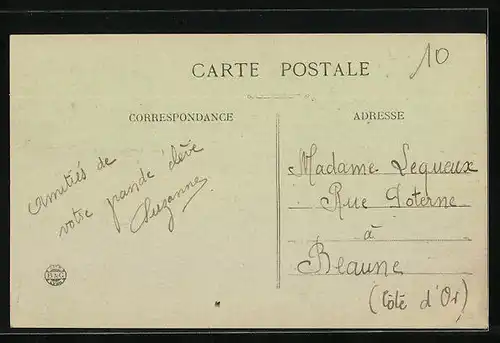 10
CARTE POSTALE
CORRESPONDANCE
Amitiés de
votre grande élève
Suzanne
ADRESSE
Madame Lequeux
Rue Poterne
à
Beaune
(Côte d'Or)
B&G